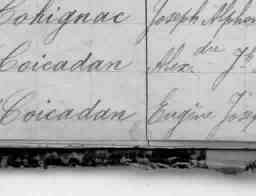 Cohignac Joseph Alpho
Coicadan Alex.dre J
Coicadan Eugène Josep